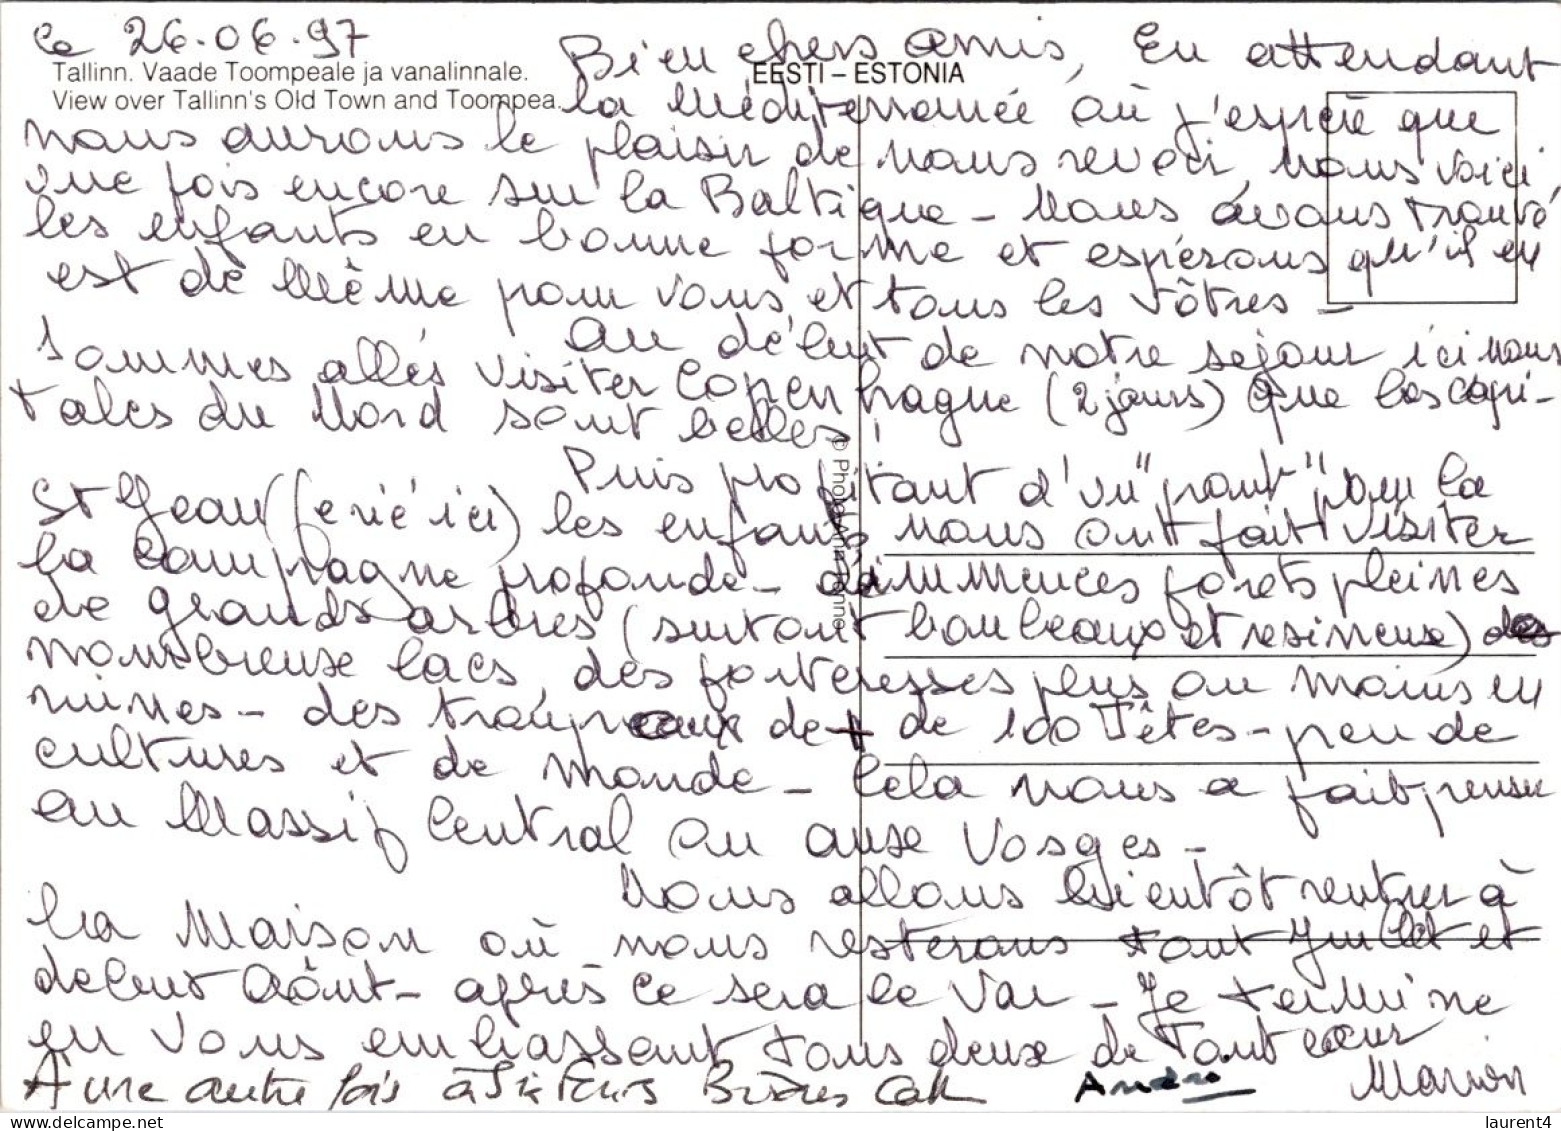 le 26.06.97
Tallinn. Vaade Toompeale ja vanalinnale.
View over Tallinn's Old Town and Toompea.
EESTI – ESTONIA
Bien chers amis, En attendant
la Méditerranée où j'espère que
nous aurons le plaisir de nous revoir, nous voici
une fois encore sur la Baltique - Nous avons trouvé
les enfants en bonne forme et espérons qu'il en
est de même pour vous et tous les vôtres -
Au début de notre séjour ici nous
sommes allés visiter Copenhague (2 jours) Que les capi-
tales du Nord sont belles !
Puis profitant d'un "pont" pour la
St Jean (férié ici) les enfants nous ont fait visiter
la campagne profonde - d'immenses forêts pleines
de grands arbres (surtout bouleaux et résineux) des
nombreuse lacs, des forteresses plus ou moins en
ruines - des troupeaux de + de 100 Têtes - peu de
cultures et de monde - Cela nous a fait penser
au Massif Central ou aux Vosges -
Nous allons bientôt rentrer à
la Maison où nous resterons tout Juillet et
début Août - après ce sera le Var - Je termine
en vous embrassant tous deux de Tout cœur
A une autre fois à André Marion
© Photo
laurent4